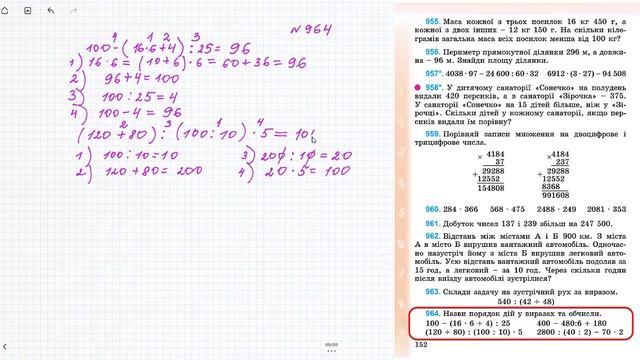 №964
4 1 2 3
100-(16·6+4):25=96
1) 16·6=(10+6)·6=60+36=96
2) 96+4=100
3) 100:25=4
4) 100-4=96
2 3 1 4
(120+80):(100:10)·5=10
1) 100:10=10
2) 120+80=200
3) 200:10=20
4) 20·5=100
69/69
955. Маса кожної з трьох посилок 16 кг 450 г, а
кожної з двох інших – 12 кг 150 г. На скільки кіло-
грамів загальна маса всіх посилок менша від 100 кг?
956. Периметр прямокутної ділянки 296 м, а довжи-
на – 96 м. Знайди площу ділянки.
957°. 4038 · 97 – 24 600 : 60 · 32 6912 · (3 · 27) – 94 508
958°. У дитячому санаторії «Сонечко» на полудень
видали 420 персиків, а в санаторії «Зірочка» – 375.
У санаторії «Сонечко» на 15 дітей більше, ніж у «Зі-
рочці». Скільки дітей у кожному санаторії, якщо пер-
сиків видали їм порівну?
959. Порівняй записи множення на двоцифрове і
трицифрове числа.
× 4184
37
+ 29288
12552
154808
× 4184
237
29288
+ 12552
8368
991608
960. 284 · 366 568 · 475 2488 · 249 2081 · 353
961. Добуток чисел 137 і 239 збільш на 247 500.
962. Відстань між містами А і Б 900 км. З міста
А в місто Б вирушив вантажний автомобіль. Одночас-
но назустріч йому з міста Б вирушив легковий авто-
мобіль. Усю відстань вантажний автомобіль подолав за
15 год, а легковий – за 10 год. Через скільки годин
після виїзду автомобілі зустрілися?
963. Склади задачу на зустрічний рух за виразом.
540 : (42 + 48)
964. Назви порядок дій у виразах та обчисли.
100 – (16 · 6 + 4) : 25 400 – 480:6 + 180
(120 + 80) : (100 : 10) · 5 2800 : (40 : 2) – 70 · 2
152